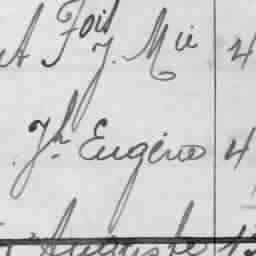 St Foil J. Mie 4
Jh Eugène 4
Auguste